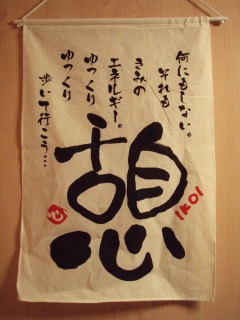 何にもしない。
それも
きみの
エネルギー。
ゆっくり
ゆっくり
歩いて行こう…
憩
IKOI